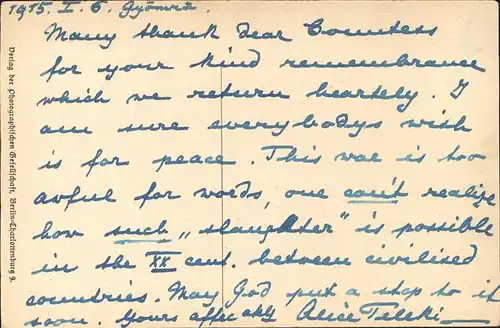 1915. I. 6. Gyömrő.
Many thank dear Countess
for your kind remembrance
which we return heartely. I
am sure everybodys wish
is for peace. This war is too
awful for words, one can't realize
how such „slaughter" is possible
in the XX cent. between civilised
countries. May God put a stop to it
soon. Yours affec ately Alice Teleki
Verlag der Photographischen Gesellschaft, Berlin-Charlottenburg 9.